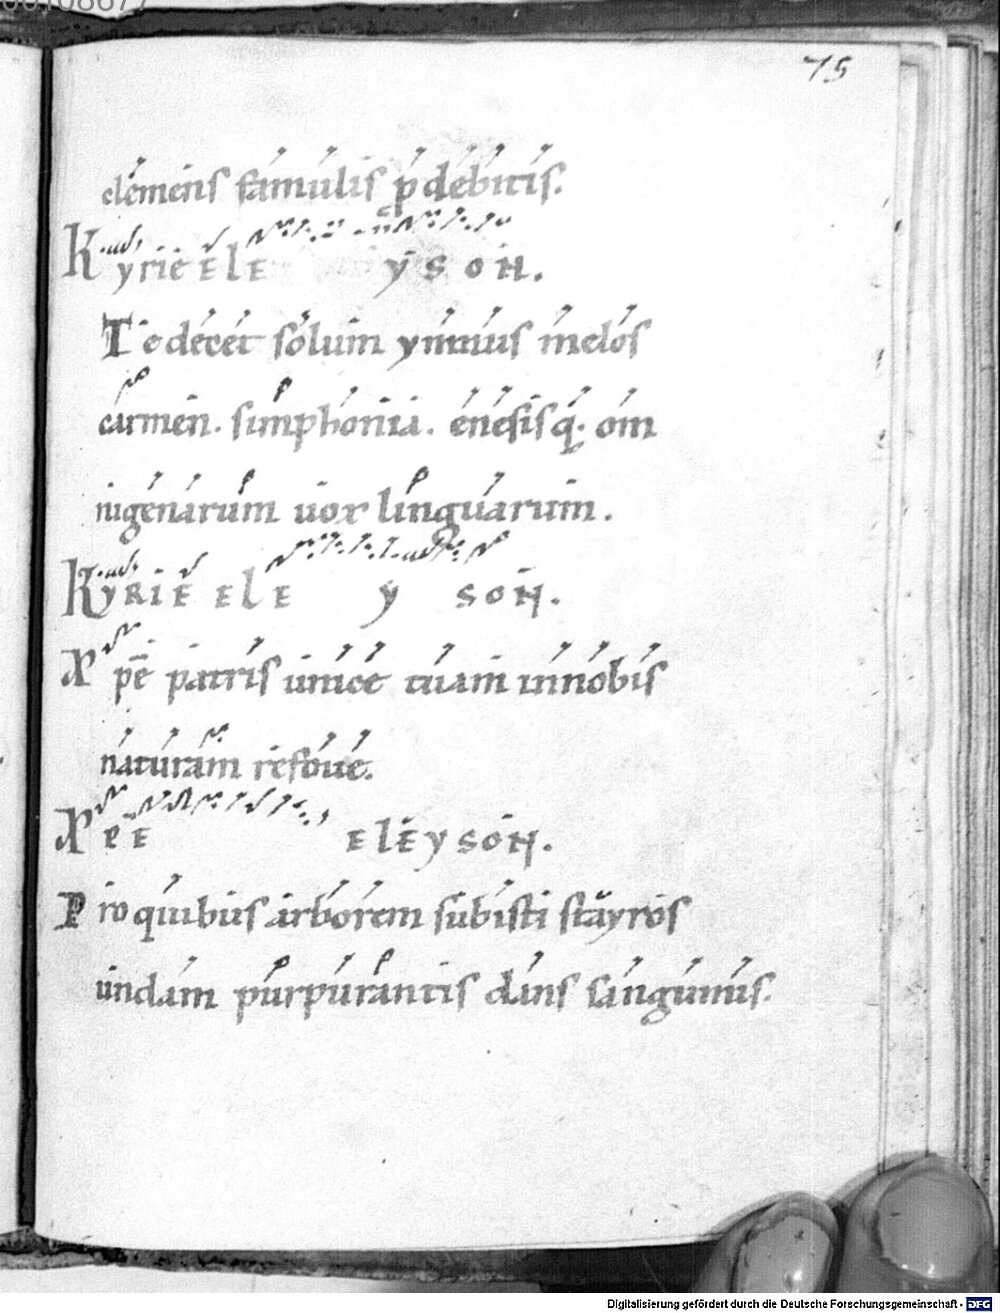 75
clemens famulis p debitis.
Kyrie ele yson.
Te decet solum ymnus melos
carmen. simphonia. enesisq;. om
nigenarum uox linguarum.
Kyrie ele y son.
Xpe patris unice tuam innobis
naturam refoue.
Xpe eleyson.
Pro quibus arborem subisti stayros
undam purpurantis dans sanguinis.
Digitalisierung gefördert durch die Deutsche Forschungsgemeinschaft - DFG